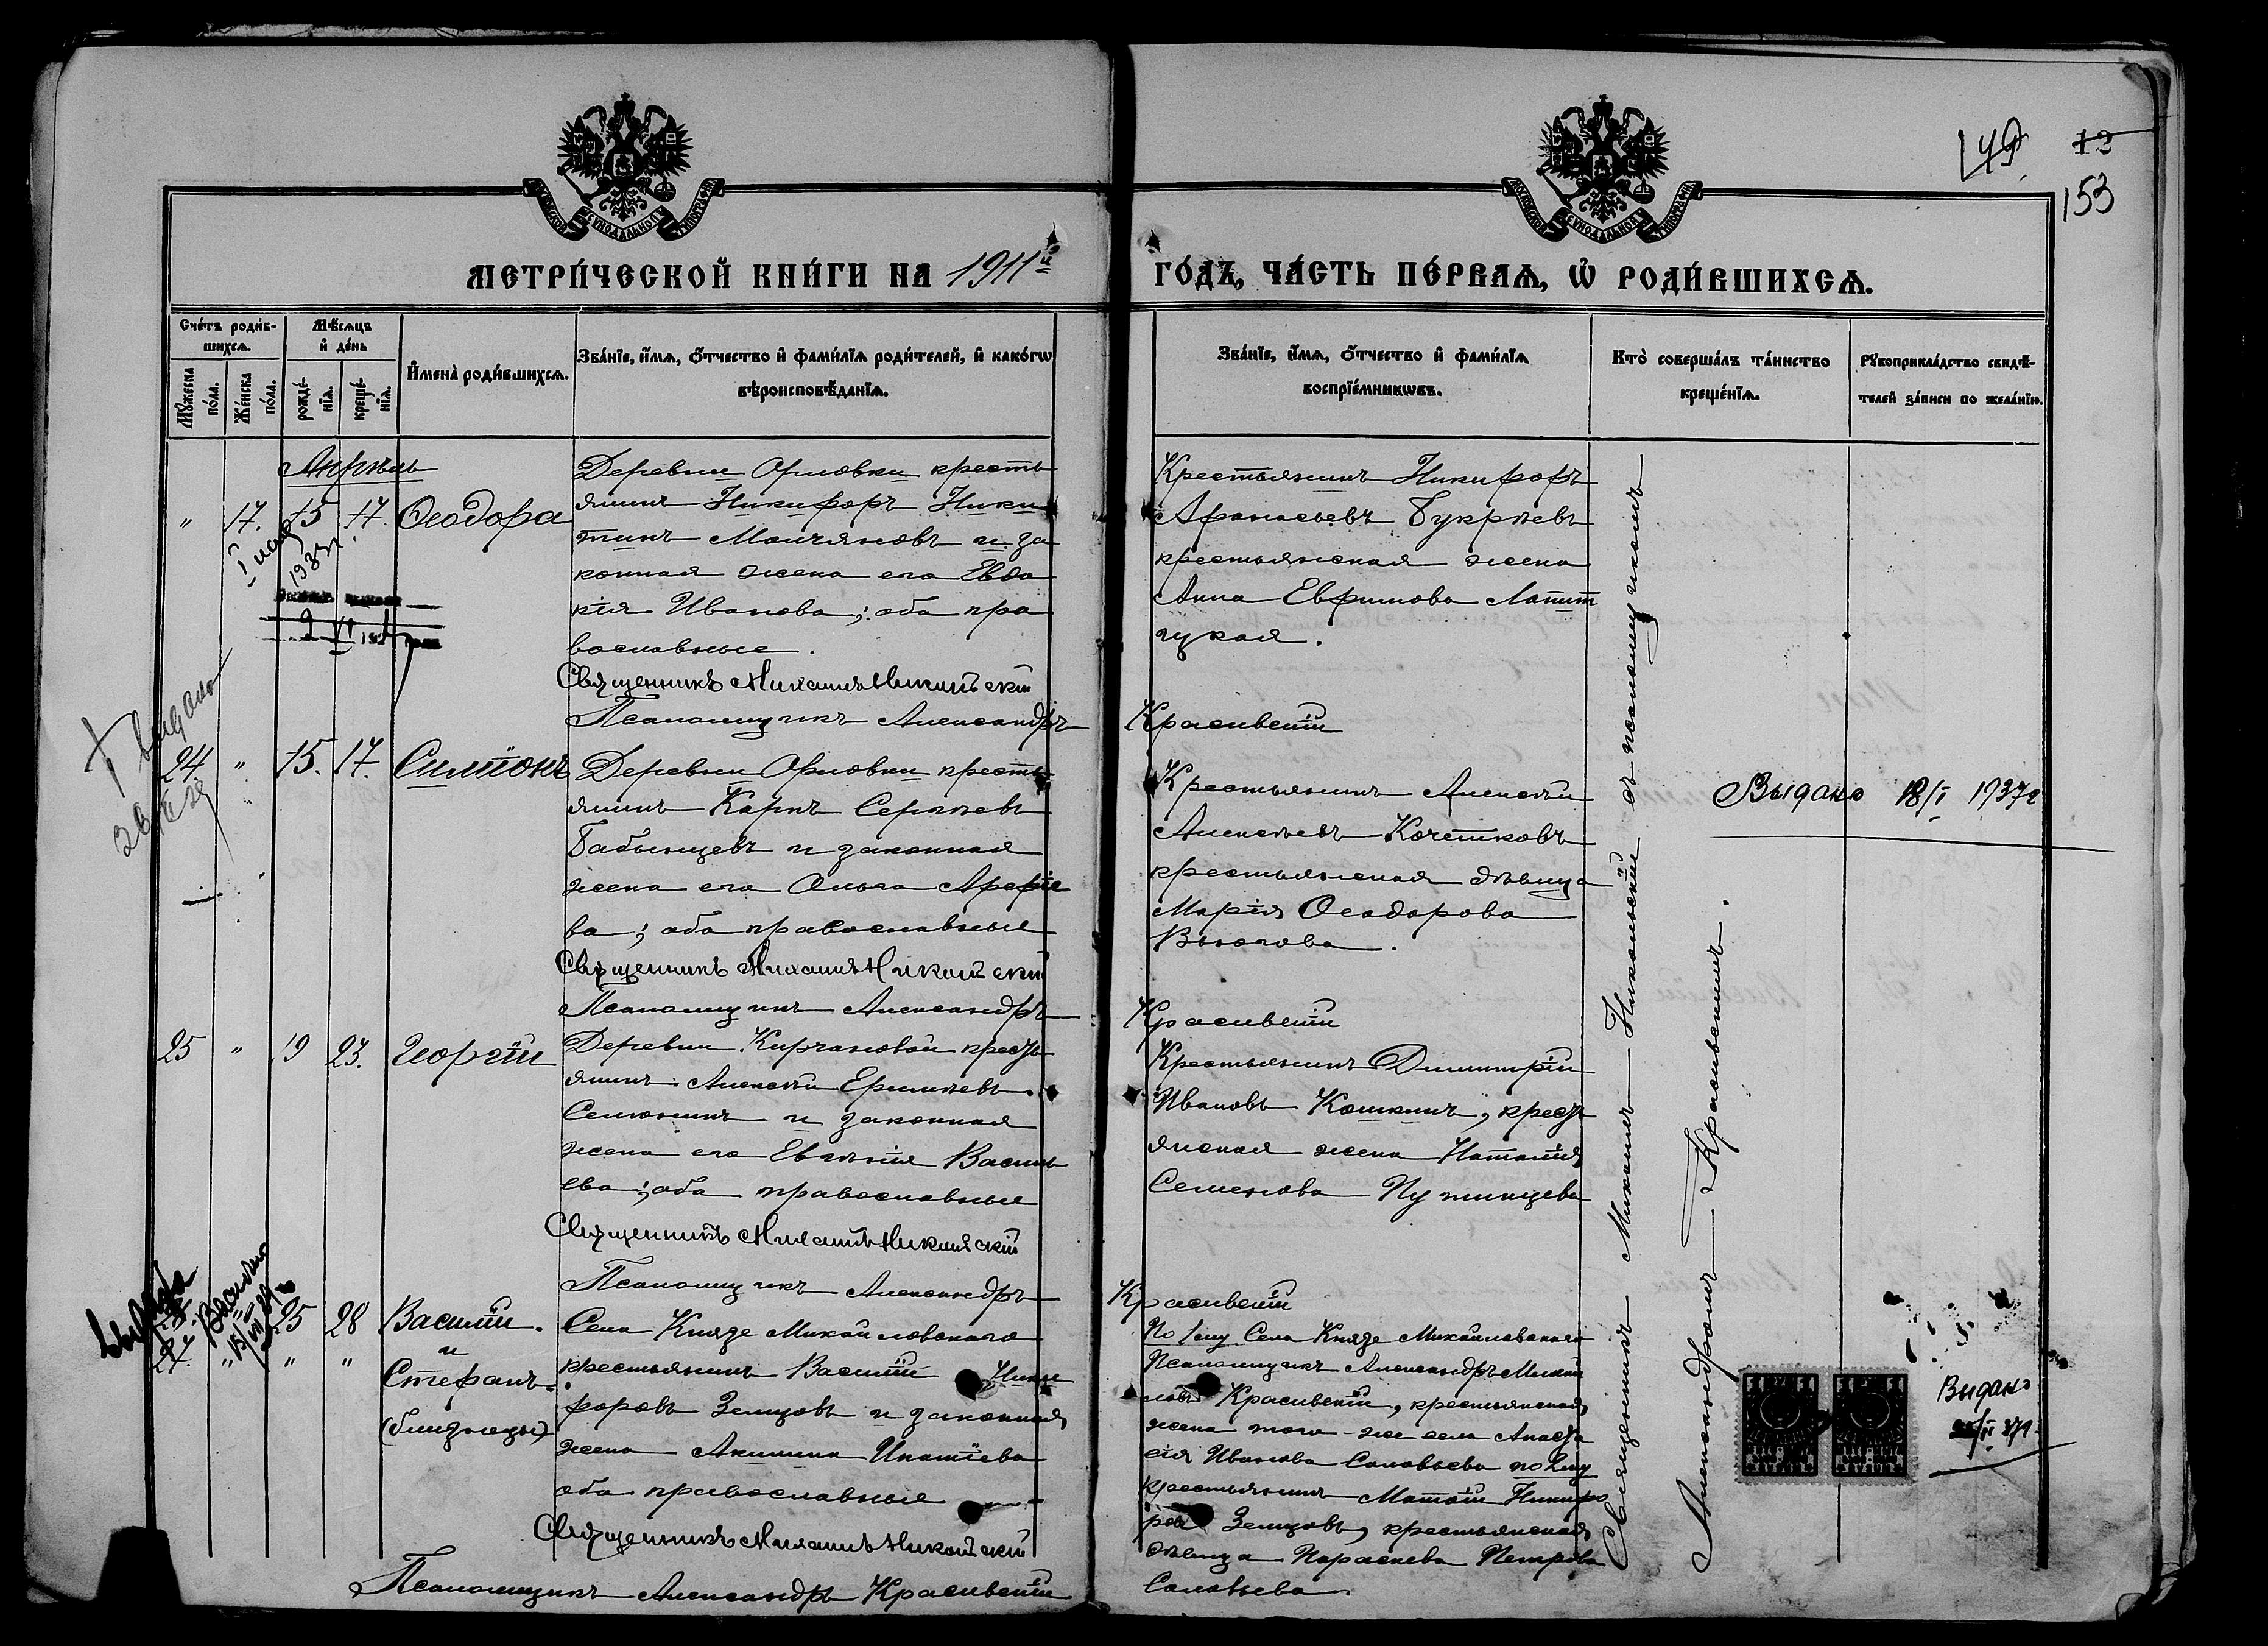 149 12
153
МЕТРИ́ЧЕСКОЙ КНИ́ГИ НА 1911 ГО́ДЪ, ЧА́СТЬ ПЕ́РВАѦ, Ѡ҆ РОДИ́ВШИХСѦ.
Сче́тъ роди́в-
шихсѧ.
Мѣ́сѧцъ
и҆ де́нь
Мꙋ́жеска
по́ла.
Же́нска
по́ла.
рожде́-
нїѧ.
креще́-
нїѧ.
И҆мена̀ роди́вшихсѧ.
Зва́нїе, и҆́мѧ, ѻ҆́тчество и҆ фами́лїѧ роди́телей, и҆ како́гѡ
вѣроисповѣ́данїѧ.
Зва́нїе, и҆́мѧ, ѻ҆́тчество и҆ фами́лїѧ
воспрїе́мникѡвъ.
Кто̀ соверша́лъ та́инство
креще́нїѧ.
Рꙋкоприкла́дство свидѣ́-
телей за́писи по жела́нїю.
Апрѣль
" 17. 15 17. Ѳеодора
Деревни Орловки кресть
янинъ Никифоръ Ники
тинъ Молчановъ и за
конная жена его Евдо
кія Иванова; оба пра
вославные.
Священникъ Михаилъ Никольскій
Псаломщикъ Александръ Красивскій
Крестьянинъ Никифоръ
Афанасьевъ Букрѣевъ
крестьянская жена
Анна Евфимова Лапит
цкая.
24 " 15. 17. Симеонъ
Деревни Орловки кресть
янинъ Карпъ Сергѣевъ
Бабынцевъ и законная
жена его Ольга Арефье
ва; оба православные
Священникъ Михаилъ Никольскій
Псаломщикъ Александръ Красивскій
Крестьянинъ Алексѣй
Алексѣевъ Кочетковъ
крестьянская дѣвица
Марія Ѳеодорова
Вьюгова.
Выдано 18/I 1937г
25 " 19 23. Георгій
Деревни Кирчановой кресть
янинъ Алексѣй
Семонинъ и законная
жена его Евгенія Василь
ева; оба православные
Священникъ Михаилъ Никольскій
Псаломщикъ Александръ Красивскій
Крестьянинъ Димитрій
Ивановъ Кошкинъ, кресть
янская жена Наталія
Семенова Путинцева
25 28 Василій.
27. " " " и
Стефанъ.
(близнецы)
Села Князе Михайловскаго
крестьянинъ Василій Ники
форовъ Земцовъ и законная
жена Акилина Ипатіева
оба православные
Священникъ Михаилъ Никольскій
Псаломщикъ Александръ Красивскій
По 1му Села Князе Михайловскаго
Псаломщикъ Александръ Михай
ловъ Красивскій, крестьянская
жена того-же села Анаста
сія Иванова Соловьева по 2му
крестьянинъ Матѳій Никифо
ровъ Земцовъ, крестьянская
дѣвица Параскева Петрова
Соловьева.
Священникъ Михаилъ Никольскій съ псаломщикомъ
Александромъ Красивскимъ.
Выдано